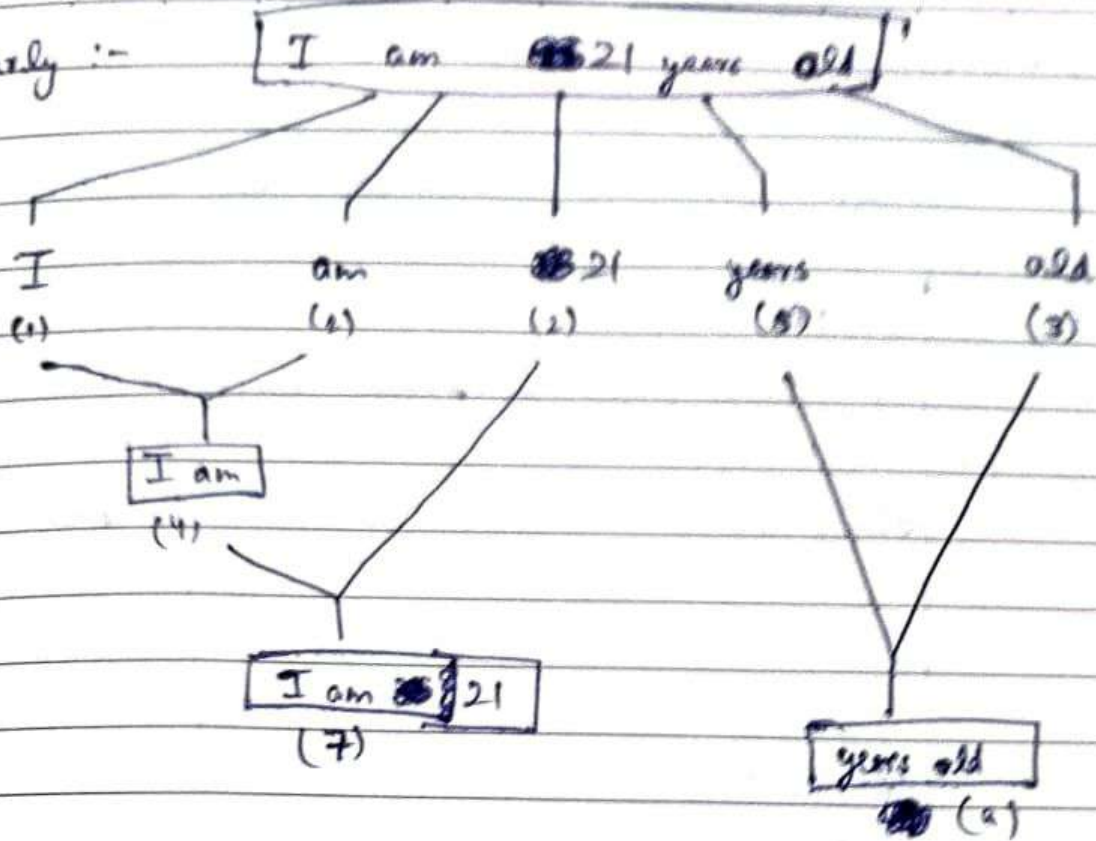 rly :- I am 21 years old'
I am 21 years old
(1) (2) (2) (5) (3)
I am
(4)
I am 21
(7)
years old
(9)